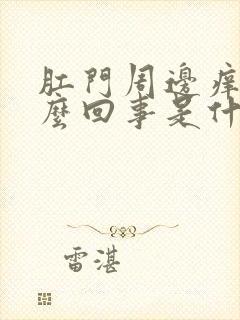 肛門周邊痒
麼回事是什
雷湛